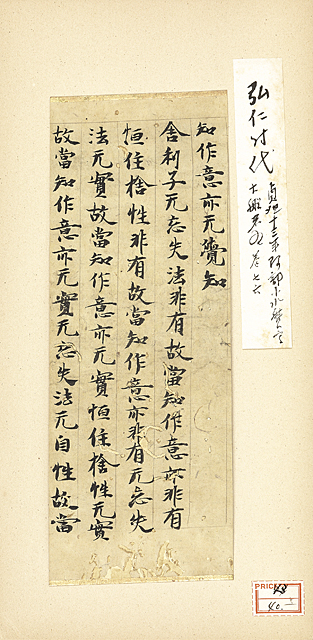 弘仁时代
知作意亦无覺知
舍利子无忘失法非有故當知作意亦非有
恒住捨性非有故當知作意亦非有无忘失
法无實故當知作意亦无實恒住捨性无實
故當知作意亦无實无忘失法无自性故當
PRICE
40.